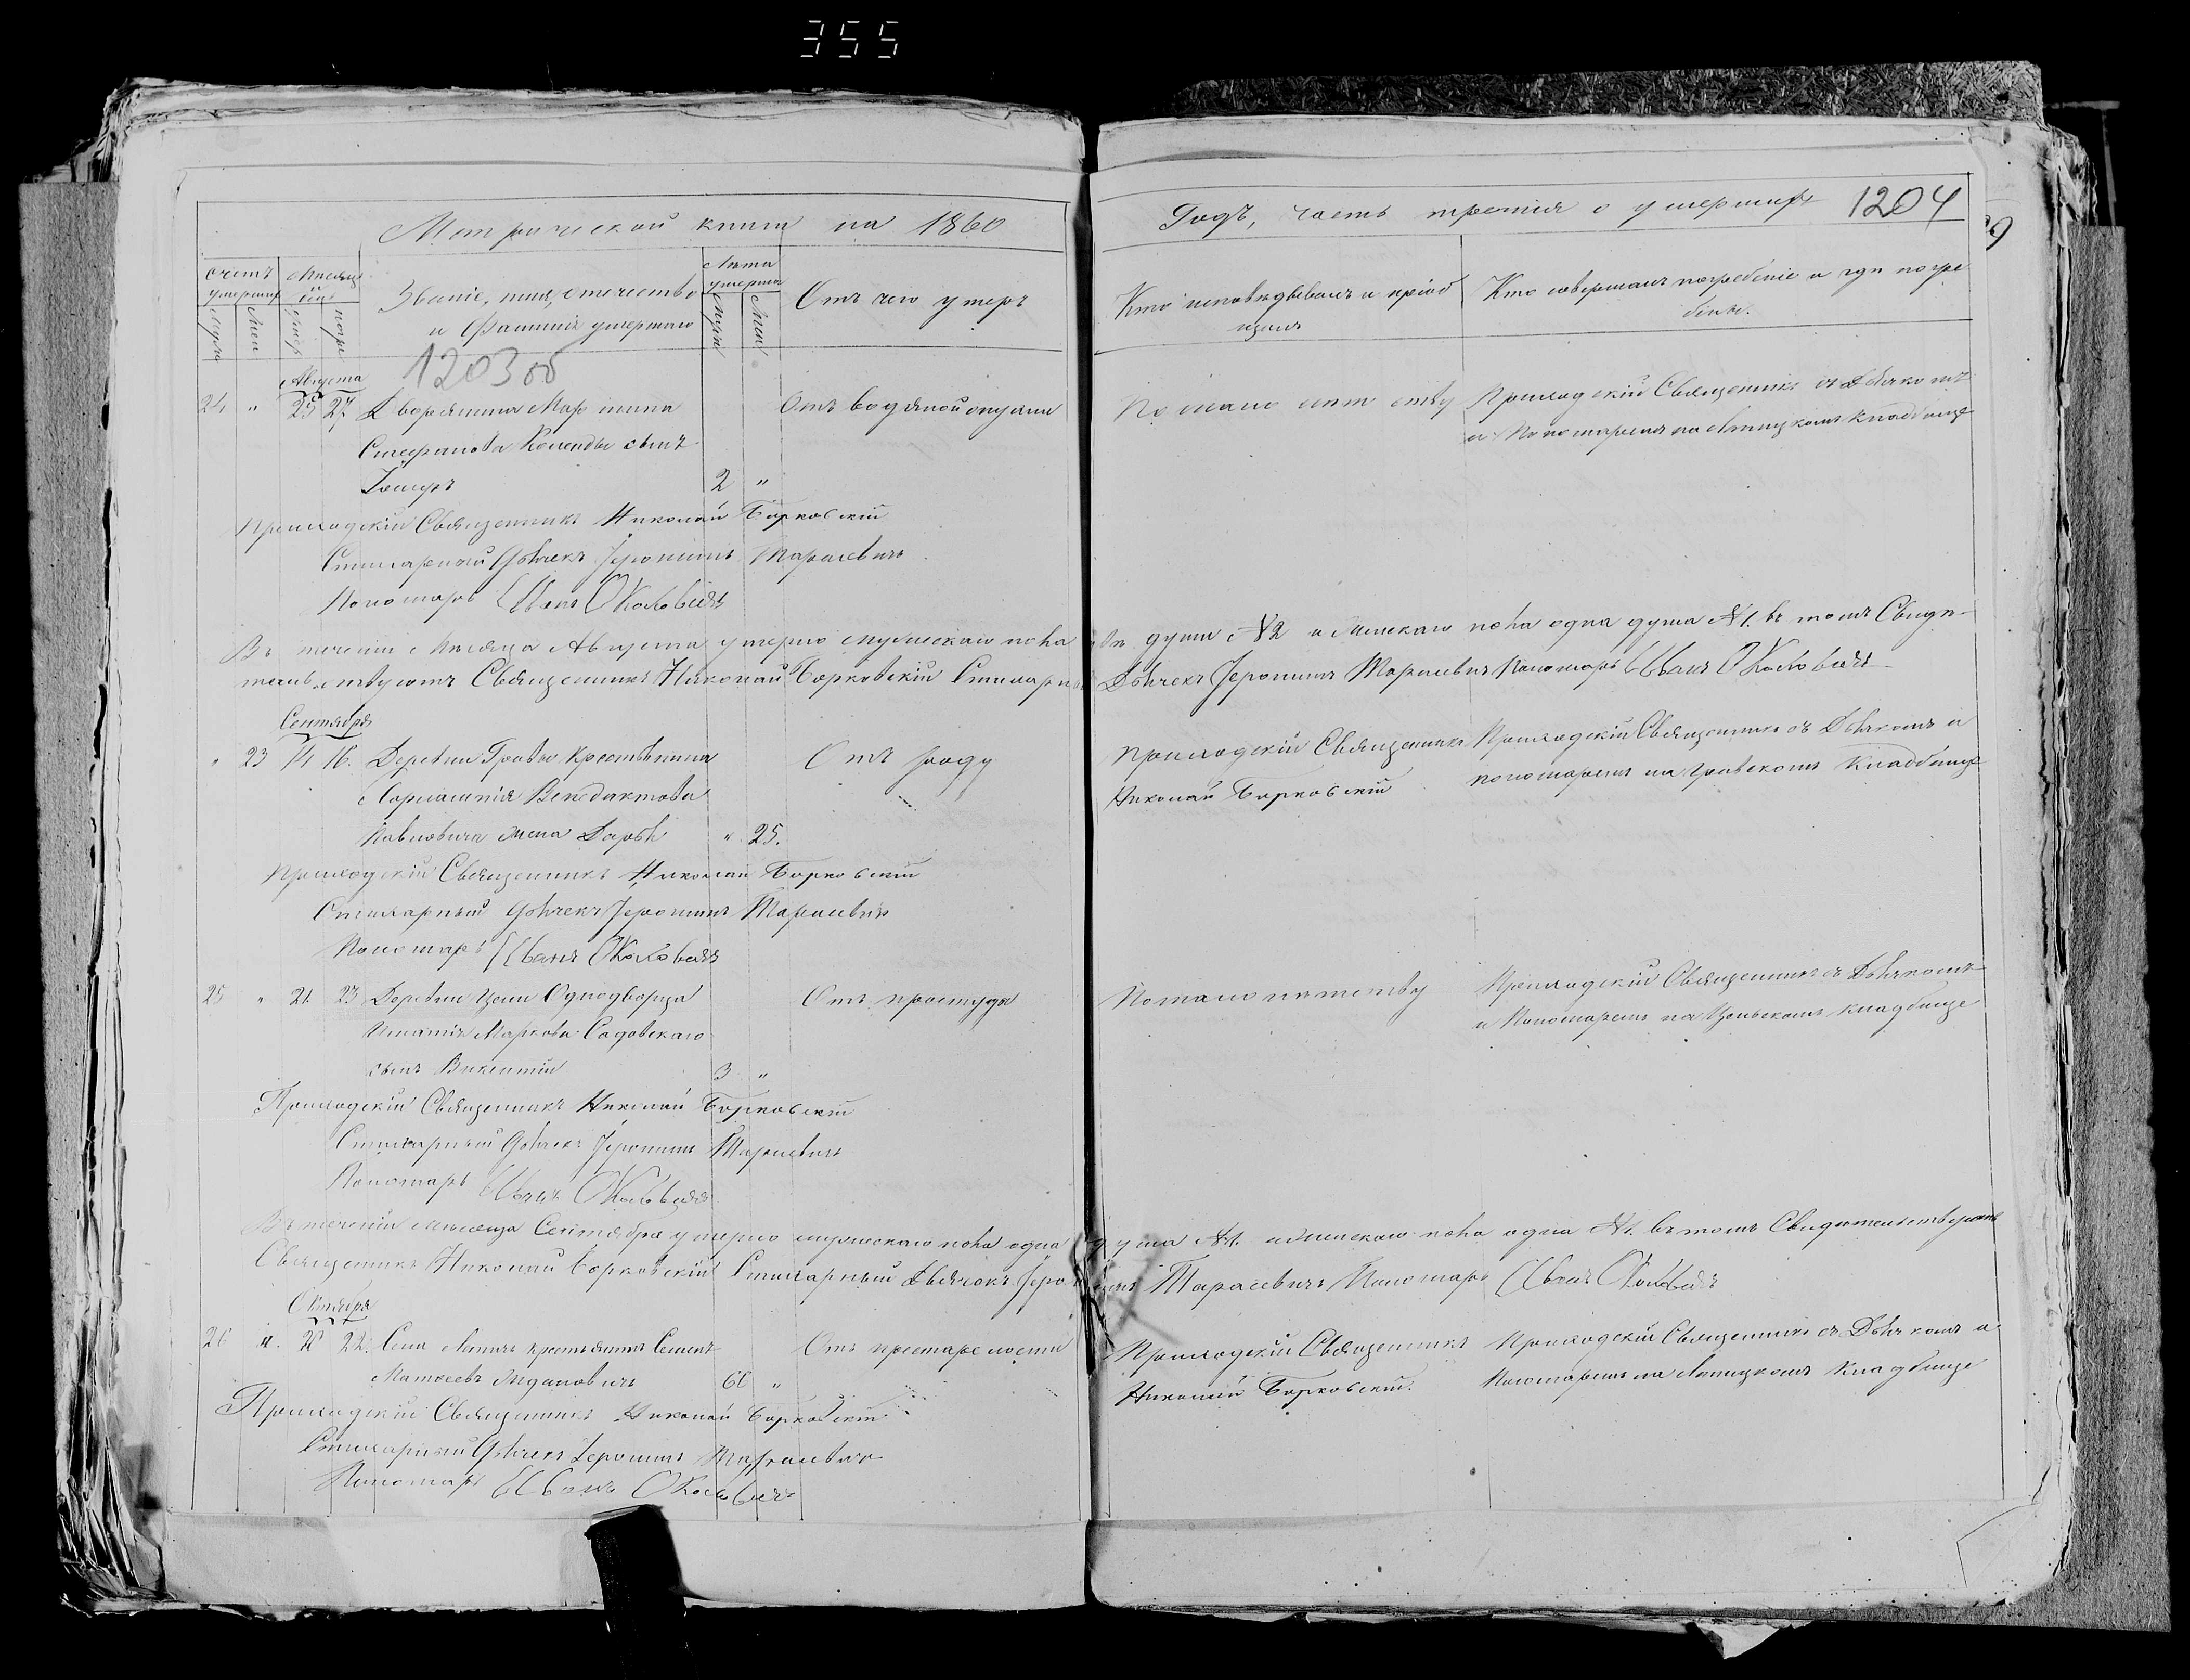 355
Метрической книги на 1860
Годъ, часть третія о умершихъ 1204
счетъ умершихъ
Мѣсяцъ
день
Званіе, имя, отечество
и Фамилія умершаго
Лѣта
умерша
Отъ чего умеръ
Кто исповѣдывалъ и пріоб
щалъ
Кто совершалъ погребеніе и гдѣ погре
бены.
1203 об
Августа
24 " 25 27. Дворянина Мартина
Стефанова Коленды сынъ
2 "
Отъ водяной опухли
По мало лѣтству
Приходскій Священникъ съ Дьячкомъ
и Пономаремъ на Липицкомъ Кладбище
Приходскій Священникъ Николай Борковскій
Стихарный Дьячекъ Іеронимъ Тарасевичъ
Пономарь Иванъ Околовичъ
Въ теченіи Мѣсяца Августа умерло мужескаго пола двѣ души №2 и Женскаго пола одна душа №1. въ томъ Свидѣ-
тельствуютъ Священникъ Николай Борковскій Стихарный Дьячекъ Іеронимъ Тарасевичъ Пономарь Иванъ Околовичъ
Сентября
" 23 14 16. Деревни крестьянина
Венедиктова
Павловича жена Дарья " 25.
Отъ роду
Приходскій Священникъ
Николай Борковскій
Приходскій Священникъ съ Дьячкомъ и
пономаремъ на Кладбище
Приходскій Священникъ Николай Борковскій
Стихарный Дьячекъ Іеронимъ Тарасевичъ
Пономарь Иванъ Околовичъ
25 " 21. 23 Деревни Цели Однодворца
Игнатія Маркова Садовскаго
сынъ Викентій 3 "
Отъ простуды
По мало лѣтству
Приходскій Священникъ съ Дьячкомъ
и Пономаремъ на Цельскомъ кладбище
Приходскій Священникъ Николай Борковскій
Стихарный Дьячекъ Іеронимъ Тарасевичъ
Пономарь Иванъ Околовичъ
Въ теченіи Мѣсяца Сентября умерло мужескаго пола одна душа №1. и Женскаго пола одна №1. въ томъ Свидѣтельствуютъ
Священникъ Николай Борковскій Стихарный Дьячокъ Іеронимъ Тарасевичъ Пономарь Иванъ Околовичъ
Октября
26 " 20 22. Села крестьянинъ Семенъ
Матвеевъ Ждановичъ 60 "
Отъ престарелости
Приходскій Священникъ
Николай Борковскій.
Приходскій Священникъ съ Дьячкомъ и
Пономаремъ на Липицкомъ Кладбище
Приходскій Священникъ Николай Борковскій
Стихарный Дьячекъ Іеронимъ Тарасевичъ
Пономарь Иванъ Околовичъ